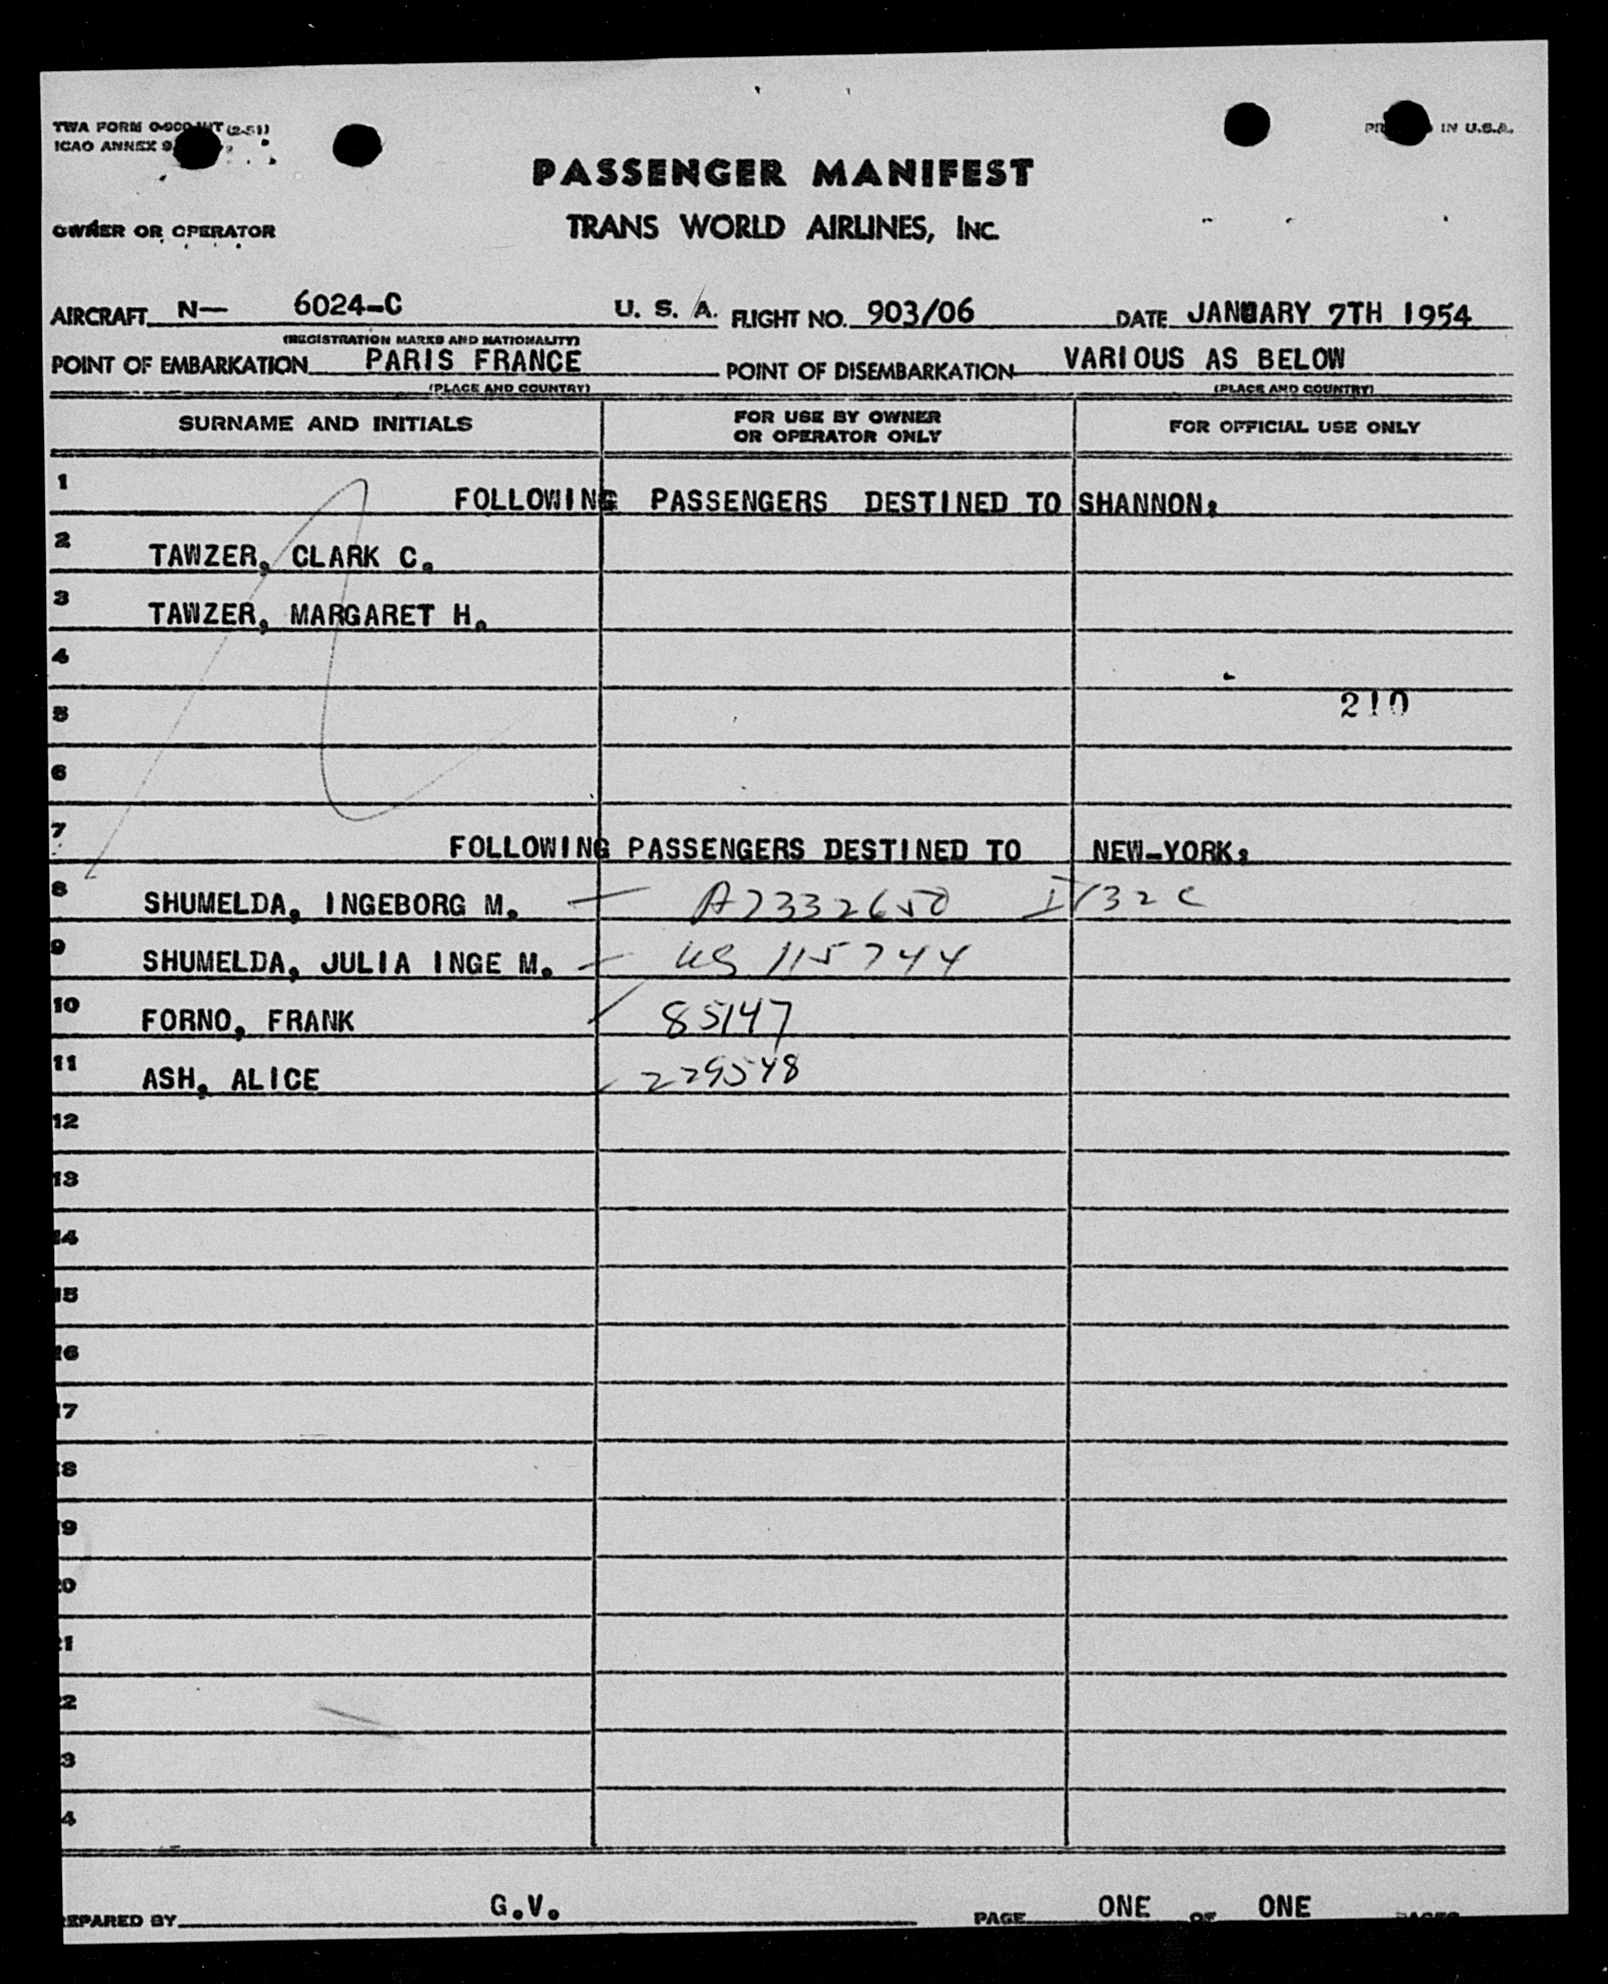 TWA FORM (2-51)
ICAO ANNEX 9
IN U.S.A.
PASSENGER MANIFEST
OWNER OR OPERATOR
TRANS WORLD AIRLINES, INC.
AIRCRAFT N— 6024-C U. S. A. FLIGHT NO. 903/06 DATE JANUARY 7TH 1954
(REGISTRATION MARKS AND NATIONALITY)
POINT OF EMBARKATION PARIS FRANCE POINT OF DISEMBARKATION VARIOUS AS BELOW
(PLACE AND COUNTRY) (PLACE AND COUNTRY)
SURNAME AND INITIALS FOR USE BY OWNER OR OPERATOR ONLY FOR OFFICIAL USE ONLY
1 FOLLOWING PASSENGERS DESTINED TO SHANNON:
2 TAWZER, CLARK C.
3 TAWZER, MARGARET H.
4
5 210
6
7 FOLLOWING PASSENGERS DESTINED TO NEW-YORK:
8 SHUMELDA, INGEBORG M. — A7332650
9 SHUMELDA, JULIA INGE M. — US 115744
10 FORNO, FRANK 85147
11 ASH, ALICE 229548
12
13
14
15
16
17
18
19
20
21
22
23
24
PREPARED BY G.V. PAGE ONE OF ONE PAGES